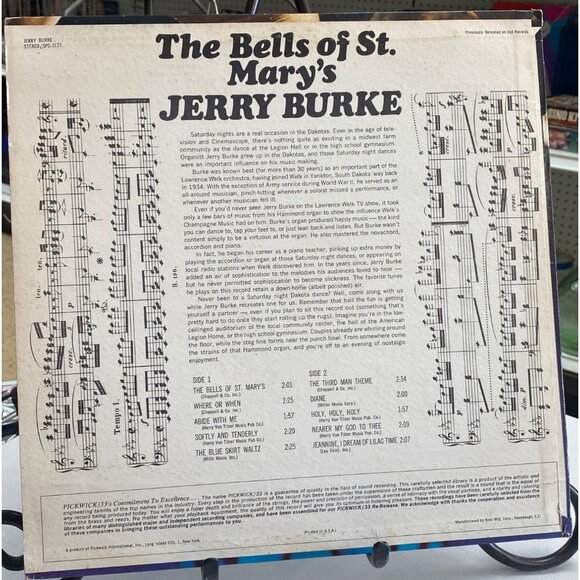 JERRY BURKE
STEREO/SPC-3121
Previously Released on Dot Records
The Bells of St.
Mary's
JERRY BURKE
Saturday nights are a real occasion in the Dakotas. Even in the age of tele-
vision and Cinemascope, there's nothing quite as exciting in a midwest farm
community as the dance at the Legion Hall or in the high school gymnasium.
Organist Jerry Burke grew up in the Dakotas, and those Saturday night dances
were an important influence on his music making.
Burke was known best (for more than 30 years) as an important part of the
Lawrence Welk orchestra, having joined Welk in Yankton, South Dakota 'way back
in 1934. With the exception of Army service during World War II, he served as an
all-around musician, pinch-hitting whenever a soloist missed a performance, or
whenever another musician fell ill.
Even if you'd never seen Jerry Burke on the Lawrence Welk TV show, it took
only a few bars of music from his Hammond organ to show the influence Welk's
Champagne Music had on him. Burke's organ produced happy music — the kind
you can dance to, tap your feet to, or just lean back and listen. But Burke wasn't
content simply to be a virtuoso at the organ. He also mastered the novachord,
accordion and piano.
In fact, he began his career as a piano teacher, picking up extra money by
playing the accordion or organ at those Saturday night dances, or appearing on
local radio stations when Welk discovered him. In the years since, Jerry Burke
added an air of sophistication to the melodies his audiences loved to hear —
but he never permitted sophistication to become slickness. The favorite tunes
he plays on this record retain a down-home (albeit polished) air.
Never been to a Saturday night Dakota dance? Well, come along with us
while Jerry Burke recreates one for us. Remember that half the fun is getting
yourself a partner — even if you plan to sit this record out (something that's
pretty hard to do once they start rolling up the rugs). Imagine you're in the low-
ceilinged auditorium of the local community center, the hall of the American
Legion Home, or the high school gymnasium. Couples already are whirling around
the floor, while the stag line forms near the punch bowl. From somewhere come
the strains of that Hammond organ, and you're off to an evening of nostalgic
enjoyment.
SIDE 1
THE BELLS OF ST. MARY'S 2:01
(Chappell & Co. Inc.)
WHERE OR WHEN 2:25
(Chappell & Co. Inc.)
ABIDE WITH ME 1:57
(Harry Von Tilzer Music Pub Co.)
SOFTLY AND TENDERLY 2:20
(Harry Von Tilzer Music Pub Co.)
THE BLUE SKIRT WALTZ 2:25
(Mills Music Inc.)
SIDE 2
THE THIRD MAN THEME 2:34
(Chappell & Co. Inc.)
DIANE 2:00
(Miller Music Corp.)
HOLY, HOLY, HOLY 1:57
(Harry Von Tilzer Music Pub Co.)
NEARER MY GOD TO THEE 2:09
(Harry Von Tilzer Music Pub Co.)
JEANNINE, I DREAM OF LILAC TIME 2:07
(Leo Feist, Inc.)
ritard
ten. ten.
cresc.
Tempo I.
B. 190.
cresc.
dim. p
PICKWICK/33's Commitment To Excellence... The name PICKWICK/33 is a guarantee of quality in the field of sound recording. This carefully selected library is a product of the artistic and
engineering talents of the top names in the industry. Every step in the production of this record has been taken under the supervision of these craftsmen and the result is a sound that is the equal of
any record being produced today. You will enjoy a full depth and brilliance of the strings; the power and precision of percussion, a sense of intimacy with the vocal portions, and a clarity and coloring
from the brass and reeds. No matter what your playback equipment, the quality of this record will give you its utmost in listening pleasure. These recordings have been carefully selected from the
libraries of many distinguished major and independent recording companies, and have been assembled for our PICKWICK/33 Re-Release. We acknowledge with thanks the cooperation and assistance
of these companies in bringing these outstanding performances to you.
(Printed in U.S.A.)
A product of Pickwick International, Inc., Long Island City, 1, New York.
Manufactured by Keel Mfg. Corp., Hauppauge, L.I.